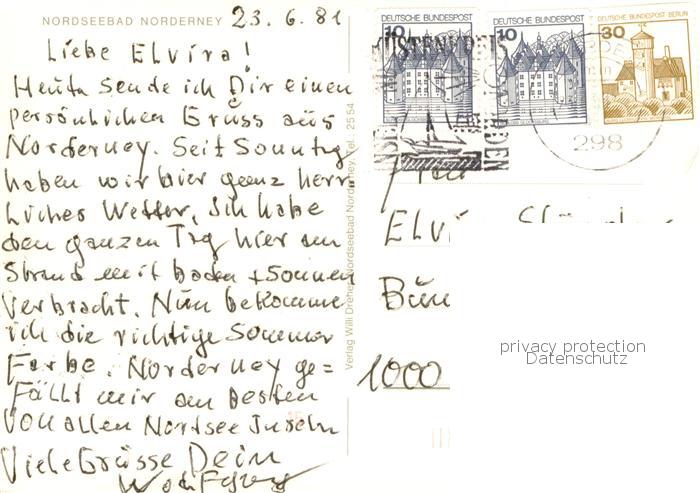 NORDSEEBAD NORDERNEY 23.6.81
Liebe Elvira!
Heute sende ich Dir einen
persönlichen Gruss aus
Norderney. Seit Sonntag
haben wir hier ganz herr
liches Wetter, Ich habe
den ganzen Tag hier am
Strand mit baden + sonnen
verbracht. Nun bekomme
ich die richtige Sommer
Farbe. Norderney ge=
fällt mir am besten
von allen Nordsee Inseln
Viele Grüsse Dein
Wolfgang
Verlag Willi Dreher, Nordseebad Norderney, Tel.: 2554
DEUTSCHE BUNDESPOST
10
DEUTSCHE BUNDESPOST
10
DEUTSCHE BUNDESPOST BERLIN
30
298
Frau
1000
privacy protection
Datenschutz